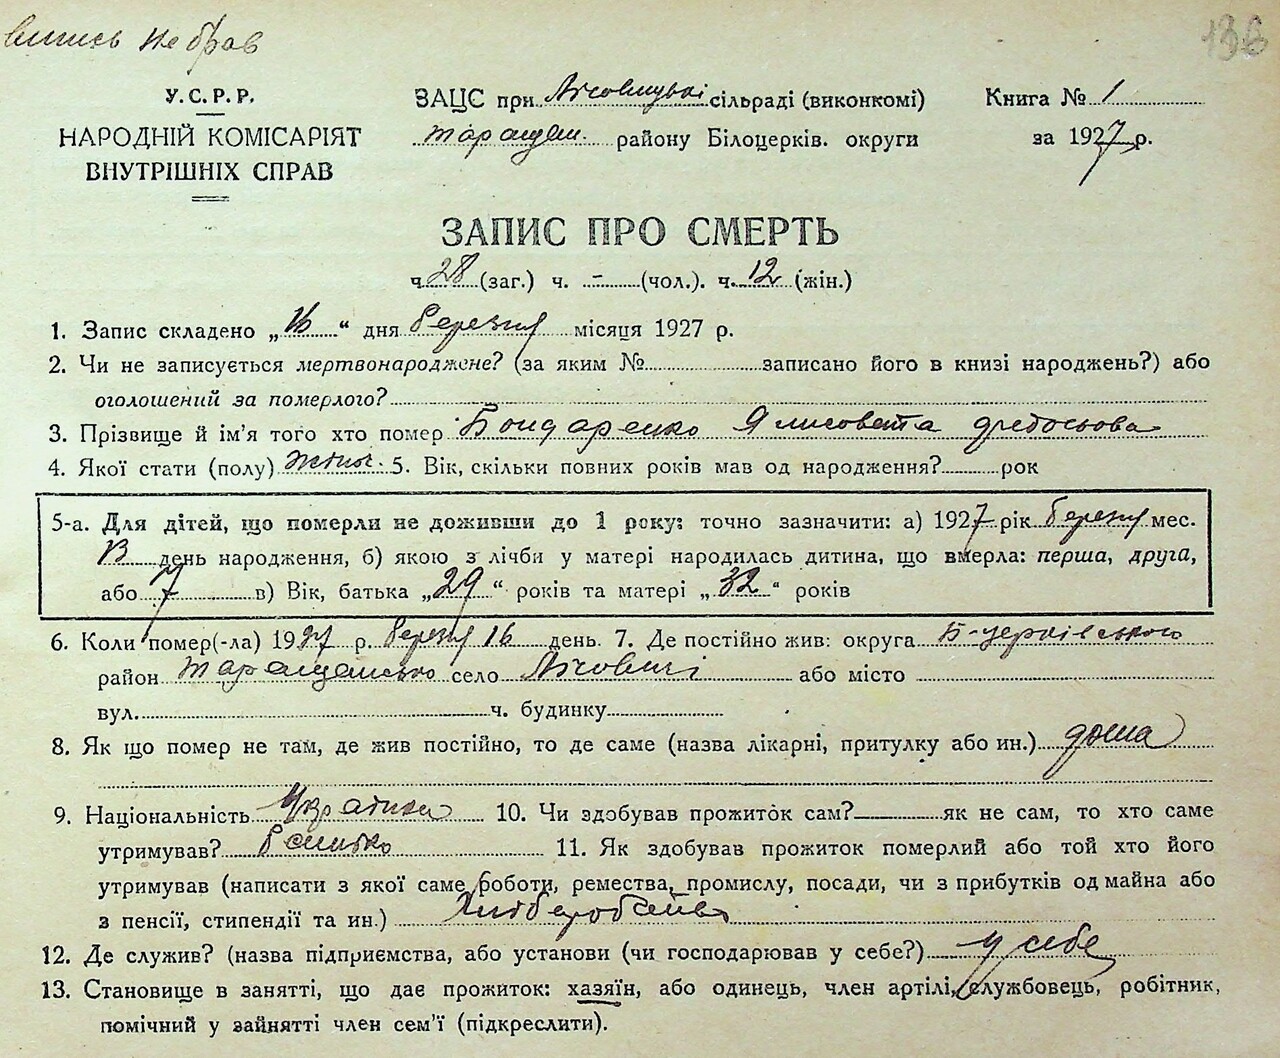 випись не брав
136
У.С.Р.Р.
НАРОДНІЙ КОМІСАРІЯТ
ВНУТРІШНІХ СПРАВ
ЗАЦС при Лісовицькі сільраді (виконкомі)
Таращан. району Білоцерків. округи
Книга № 1
за 1927 р.
ЗАПИС ПРО СМЕРТЬ
ч. 28 (заг.) ч. - (чол.). ч. 12 (жін.)
1. Запис складено „16“ дня березня місяця 1927 р.
2. Чи не записується мертвонароджене? (за яким № записано його в книзі народжень?) або
оголошений за померлого?
3. Прізвище й ім'я того хто помер Бондаренко Ялисовета Федосьова
4. Якої стати (полу) жіноч. 5. Вік, скільки повних років мав од народження? рок
5-а. Для дітей, що померли не доживши до 1 року: точно зазначити: а) 1927 рік березня мес.
13 день народження, б) якою з лічби у матері народилась дитина, що вмерла: перша, друга,
або 7 в) Вік, батька „29“ років та матері „32“ років
6. Коли помер(-ла) 1927 р. березня 16 день. 7. Де постійно жив: округа Б-Церківського
район Таращансько село Лісовичі або місто
вул. ч. будинку
8. Як що помер не там, де жив постійно, то де саме (назва лікарні, притулку або ин.) дома
9. Національність Україинка 10. Чи здобував прожиток сам? як не сам, то хто саме
утримував? батько 11. Як здобував прожиток померлий або той хто його
утримував (написати з якої саме роботи, ремества, промислу, посади, чи з прибутків од майна або
з пенсії, стипендії та ин.) Хлібе­робство
12. Де служив? (назва підприємства, або установи (чи господарював у себе?) у себе
13. Становище в занятті, що дає прожиток: хазяїн, або одинець, член артілі, службовець, робітник,
помічний у зайнятті член сем'ї (підкреслити).